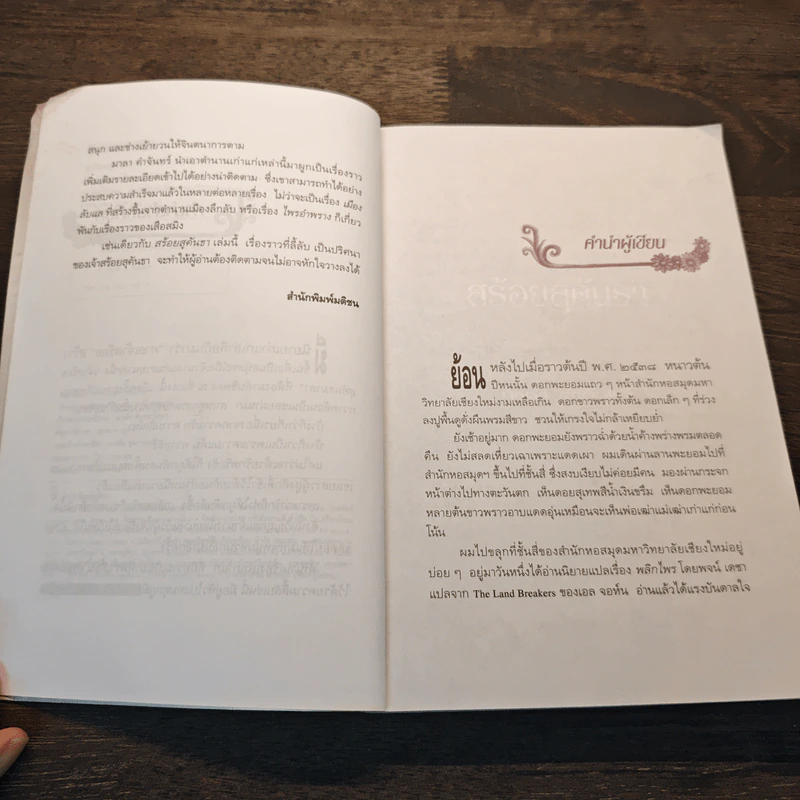 สนุก และช่างเย้ายวนให้จินตนาการตาม
มาลา คำจันทร์ นำเอาตำนานเก่าแก่เหล่านี้มาผูกเป็นเรื่องราว
เพิ่มเติมรายละเอียดเข้าไปได้อย่างน่าติดตาม ซึ่งเขาสามารถทำได้อย่าง
ประสบความสำเร็จมาแล้วในหลายต่อหลายเรื่อง ไม่ว่าจะเป็นเรื่อง เมือง
ลับแล ที่สร้างขึ้นจากตำนานเมืองลึกลับ หรือเรื่อง ไพรอำพราง ก็เกี่ยว
พันกับเรื่องราวของเสือสมิง
เช่นเดียวกับ สร้อยสุคันธา เล่มนี้ เรื่องราวที่ลี้ลับ เป็นปริศนา
ของเจ้าสร้อยสุคันธา จะทำให้ผู้อ่านต้องติดตามจนไม่อาจหักใจวางลงได้
สำนักพิมพ์มติชน
คำนำผู้เขียน
สร้อยสุคันธา
ย้อน หลังไปเมื่อราวต้นปี พ.ศ. ๒๕๓๘ หนาวต้น
ปีหนนั้น ดอกพะยอมแถว ๆ หน้าสำนักหอสมุดมหา
วิทยาลัยเชียงใหม่งามเหลือเกิน ดอกขาวพราวทั้งต้น ดอกเล็ก ๆ ที่ร่วง
ลงปูพื้นดูดั่งผืนพรมสีขาว ชวนให้เกรงใจไม่กล้าเหยียบย่ำ
ยังเช้าอยู่มาก ดอกพะยอมยังพราวฉ่ำด้วยน้ำค้างพร่างพรมตลอด
คืน ยังไม่สลดเหี่ยวเฉาเพราะแดดเผา ผมเดินผ่านลานพะยอมไปที่
สำนักหอสมุดฯ ขึ้นไปที่ชั้นสี่ ซึ่งสงบเงียบไม่ค่อยมีคน มองผ่านกระจก
หน้าต่างไปทางตะวันตก เห็นดอยสุเทพสีน้ำเงินขรึม เห็นดอกพะยอม
หลายต้นขาวพราวอาบแดดอุ่นเหมือนจะเห็นพ่อเฒ่าแม่เฒ่าเก่าแก่ก่อน
โน้น
ผมไปขลุกที่ชั้นสี่ของสำนักหอสมุดมหาวิทยาลัยเชียงใหม่อยู่
บ่อย ๆ อยู่มาวันหนึ่งได้อ่านนิยายแปลเรื่อง พลิกไพร โดยพจน์ เดชา
แปลจาก The Land Breakers ของเอล จอห์น อ่านแล้วได้แรงบันดาลใจ